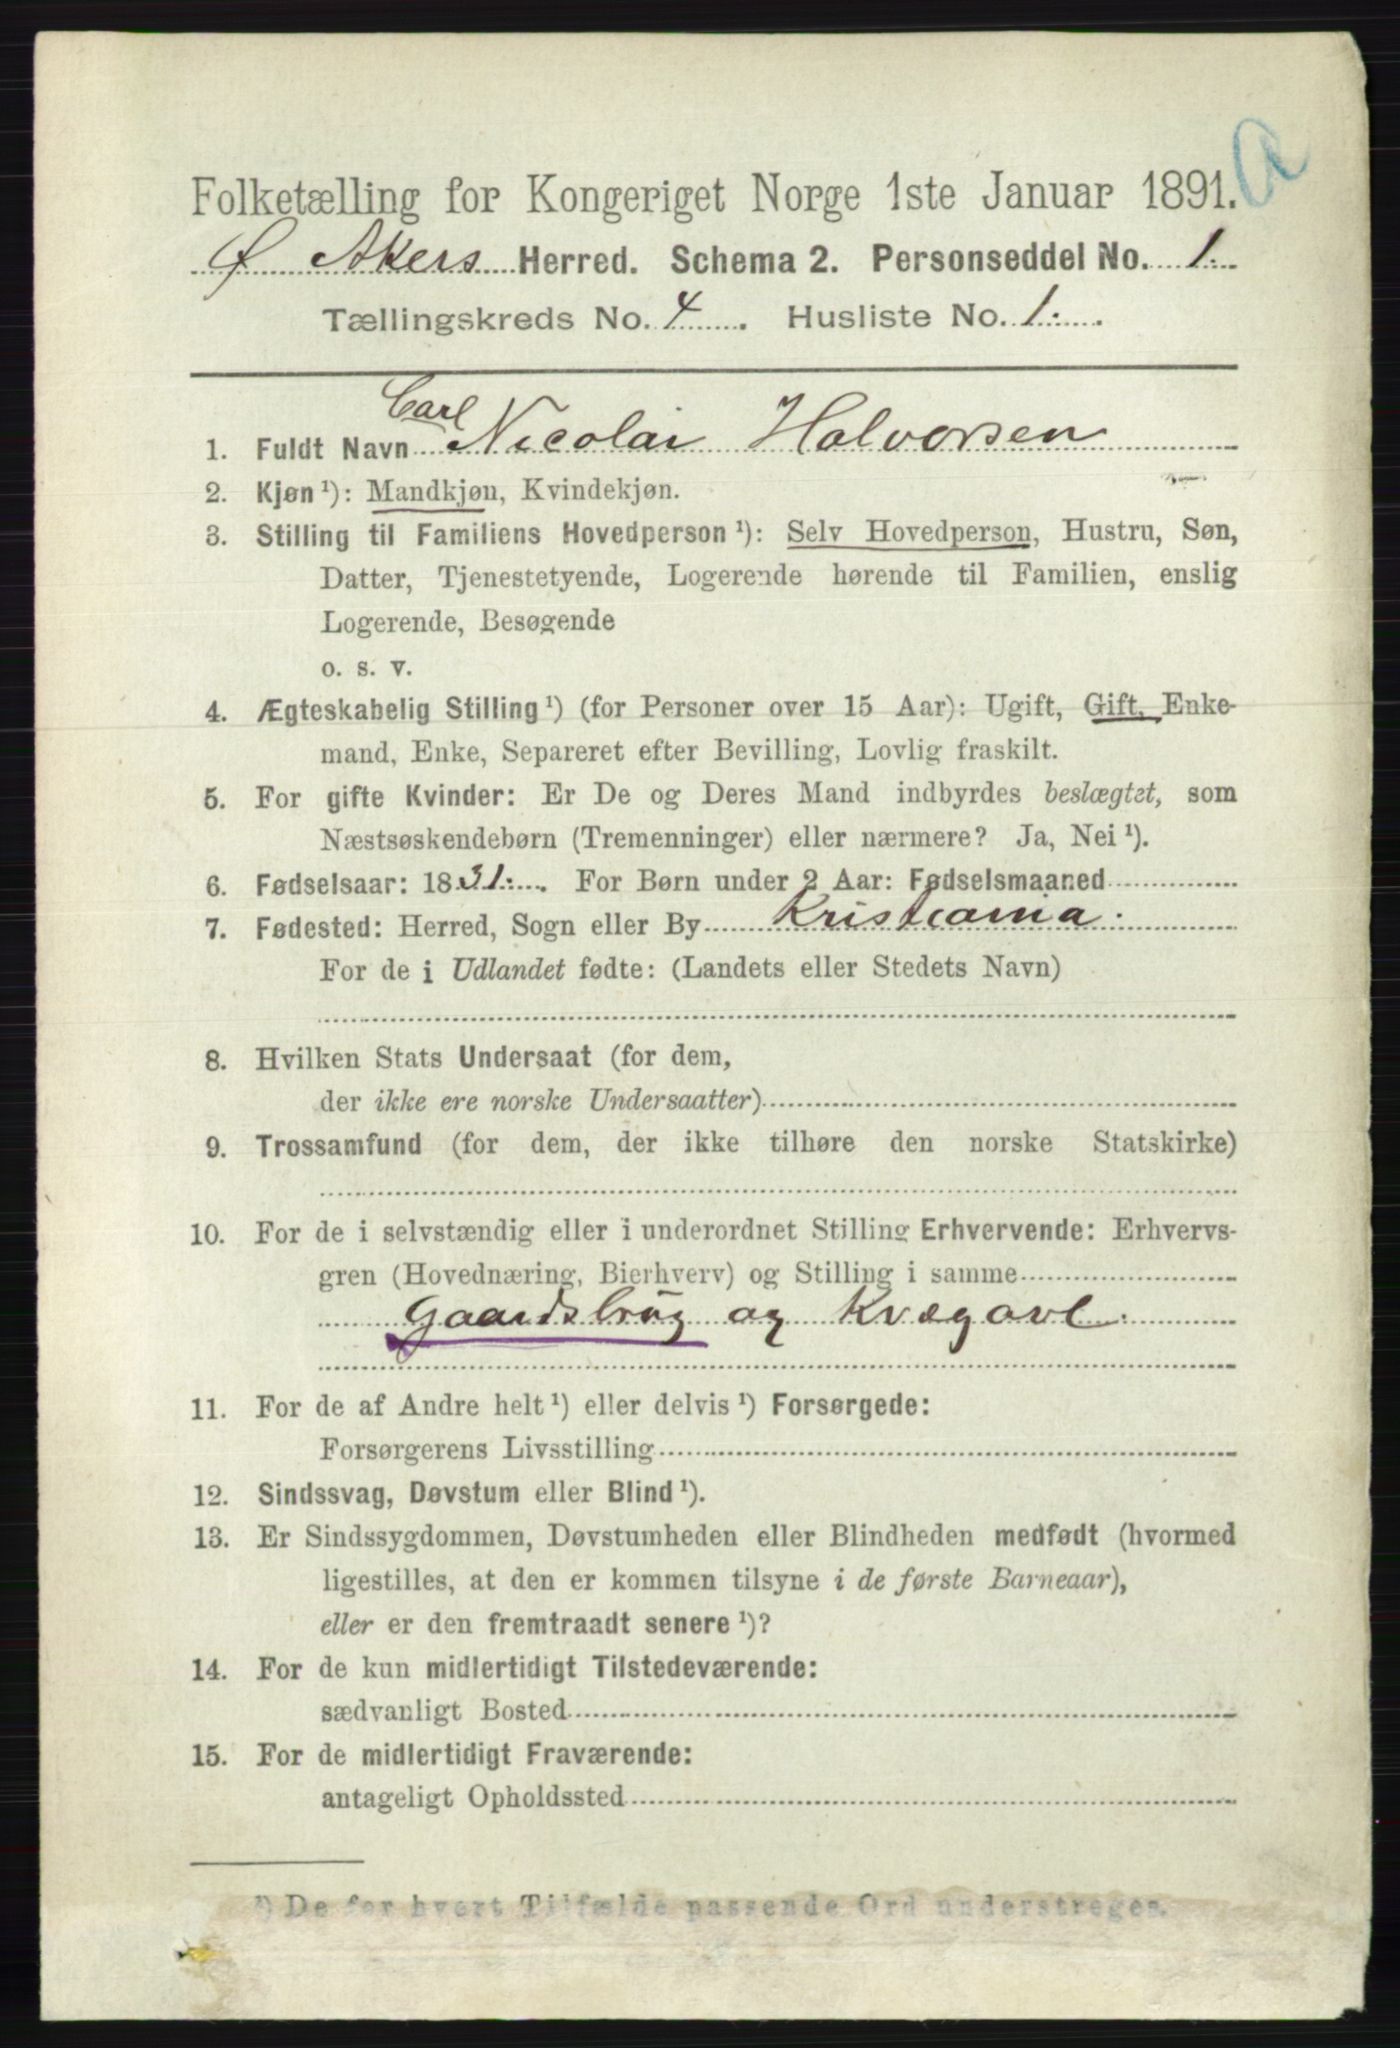 Folketælling for Kongeriget Norge 1ste Januar 1891.
Ø Akers Herred. Schema 2. Personseddel No. 1.
Tællingskreds No. 4. Husliste No. 1.
Carl
1. Fuldt Navn Nicolai Halvorsen
2. Kjøn ¹): Mandkjøn, Kvindekjøn.
3. Stilling til Familiens Hovedperson ¹): Selv Hovedperson, Hustru, Søn,
Datter, Tjenestetyende, Logerende hørende til Familien, enslig
Logerende, Besøgende
o. s. v.
4. Ægteskabelig Stilling ¹) (for Personer over 15 Aar): Ugift, Gift, Enke-
mand, Enke, Separeret efter Bevilling, Lovlig fraskilt.
5. For gifte Kvinder: Er De og Deres Mand indbyrdes beslægtet, som
Næstsøskendebørn (Tremenninger) eller nærmere? Ja, Nei ¹).
6. Fødselsaar: 1831. For Børn under 2 Aar: Fødselsmaaned
7. Fødested: Herred, Sogn eller By Kristiania.
For de i Udlandet fødte: (Landets eller Stedets Navn)
8. Hvilken Stats Undersaat (for dem,
der ikke ere norske Undersaatter)
9. Trossamfund (for dem, der ikke tilhøre den norske Statskirke)
10. For de i selvstændig eller i underordnet Stilling Erhvervende: Erhvervs-
gren (Hovednæring, Bierhverv) og Stilling i samme
Gaardsbrug og Kvægavl.
11. For de af Andre helt ¹) eller delvis ¹) Forsørgede:
Forsørgerens Livsstilling
12. Sindssvag, Døvstum eller Blind ¹).
13. Er Sindssygdommen, Døvstumheden eller Blindheden medfødt (hvormed
ligestilles, at den er kommen tilsyne i de første Barneaar),
eller er den fremtraadt senere ¹)?
14. For de kun midlertidigt Tilstedeværende:
sædvanligt Bosted
15. For de midlertidigt Fraværende:
antageligt Opholdssted
¹) De for hvert Tilfælde passende Ord understreges.